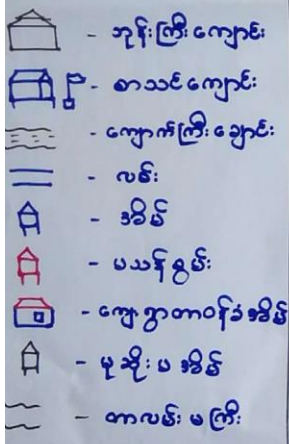 - ဘုန်းကြီးကျောင်း
- စာသင်ကျောင်း
- ကျောက်ကြီးချောင်း
- လမ်း
- အိမ်
- မသန်စွမ်း
- ကျေးရွာတာဝန်ခံအိမ်
- မုဆိုးမအိမ်
- တာလမ်းမကြီး